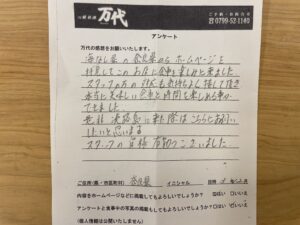 万代
ご予約・お問合せ
☎0799-52-1140
アンケート
万代の感想をお願いいたします。
海なし県の奈良県からホームページを
拝見してこのお店と食事を楽しみに来ました
スタッフの方の対応も気持ちよく接して頂き
本当に美味しい食事と時間を楽しめる事が
できました。
是非 淡路島に来た際はこちらにお伺い
したいと思います
スタッフの皆様 有難うございました。
ご住所(県・市区町村) 奈良県 イニシャル
内容をホームページなどに掲載してもよろしいでしょうか? はい □いいえ
アンケートと食事中の写真の掲載もしてもよろしいでしょうか? □はい いいえ
(個人情報は公開いたしません)